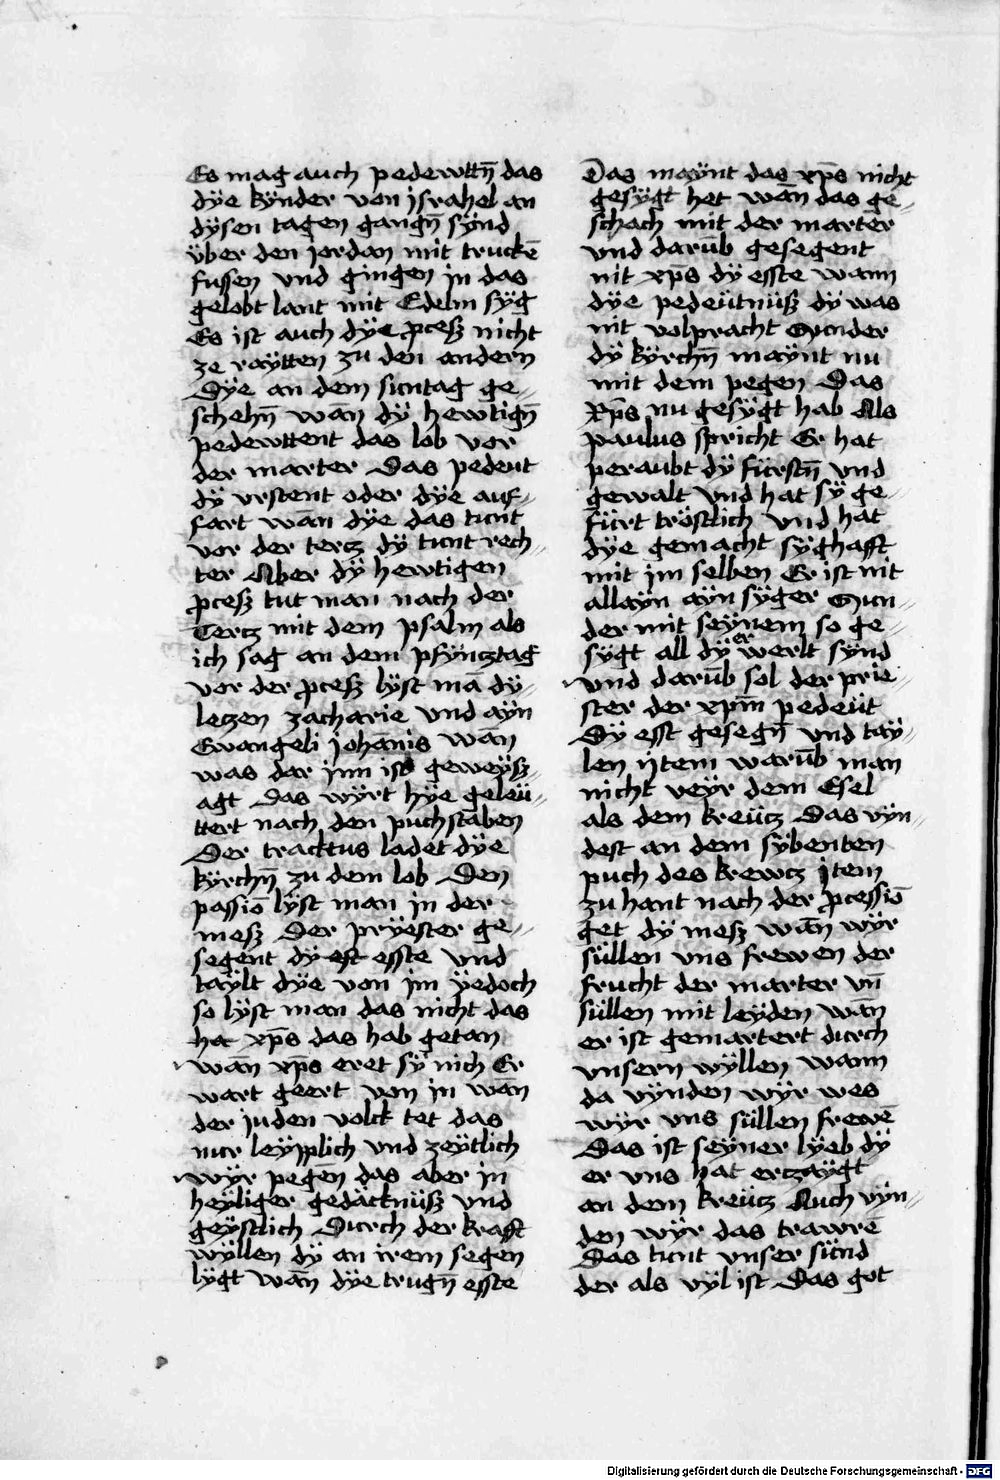 Es mag auch pedewttn̄ das
dÿe kÿnder von jsrahel an
dÿsen tagen gangn̄ sÿnd
über den jordan mit truckē
fussen vnd gingen jn das
gelobt lant mit Edelm sÿg
Es ist auch dÿe ꝓcesz nicht
ze raÿtten zu den andern
Dÿe an dem suntag ge⸗
schehn̄ wān dÿ hewtign̄
pedewttent das lob vor
der marter Das pedeut
dÿ vrstent oder dÿe auf⸗
fart wān dÿe das tunt
vor der tercz dÿ tunt rech⸗
ter Aber dÿ hewtigen
ꝓcesz tut man nach der
Tercz mit dem psalm als
ich sag an dem pfÿncztag
vor der ꝓcesz lÿst mā dÿ⸗
leczen zacharie vnd aÿn
Ewangeli johanis wān
was dar jnn ist geweÿsz⸗
agt Das wÿrt hÿe geleü⸗
ttert nach den puchstaben
Der tracktus ladet dÿe
kÿrchn̄ zu dem lob Den
passiō lÿst man in der
mesz Der prÿester ge⸗
segent dÿ est esste vnd
taÿlt dÿe von jm ÿedoch
so lÿst man das nicht das
ha xp̄s das hab getan
wān xp̄s eret sÿ nich Er
wart geert von in wān
der juden volck tet das
nur leÿpplich vnd zeÿtlich
wÿr pegen das aber in
heÿliger gedäcknüsz vnd
geÿstlich Durch der krafft
wÿllen dÿ an irem segen
lÿgt wān dÿe trugn̄ esste
Das maÿnt das xp̄s nicht
gesÿgt het wān das ge⸗
schach mit der marter
vnd darūb gesegent
nit xp̄s dÿ esste wann
dÿe pedeütnüsz dÿ was
nit volpracht Sunder
dÿ kÿrchn̄ maÿnt nu
mit dem pegen Das
Xp̄s nu gesÿgt hab Als
paulus spricht Er hat
peraubt dÿ fürstn̄ vnd
gewalt vnd hat sÿ ge⸗
fürt tröstlich vnd hat
dÿe gemacht sÿghafft
mit jm selben Er ist nit
allaÿn aÿn sÿger Sun⸗
der mit seÿnem so ge⸗
sÿgt all dÿ er werlt sÿnd
vnd darūb sol der prie⸗
ster der xpm̄ pedeüt
Dÿ esst gesegn̄ vnd taÿ⸗
len ytem warūb man
nicht veÿr dem Esel
als dem kreücz Das vÿn⸗
dest an dem sÿbenten
puch des krewcz jtem
zu hant nach der ꝓcessiō
get dÿ mesz wān wÿr
süllen vns frewen der
frucht der marter vn̄
süllen mit leÿden wān
er ist gemartert durch
vnsern wÿllen wann
da vÿnden wÿr wes
wÿr vns süllen frewē
Das ist seÿner lÿeb dÿ
er vns hat erczaÿgt
an dem kreücz Auch vÿn⸗
den wÿr das trawrē
Das tunt vnser sünd
der als vÿl ist Das got
Digitalisierung gefördert durch die Deutsche Forschungsgemeinschaft - DFG